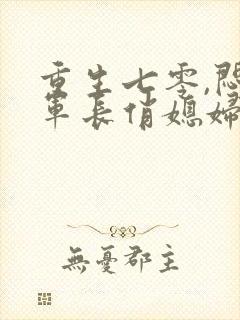 重生七零,悶
軍長俏媳婦
無憂郡主